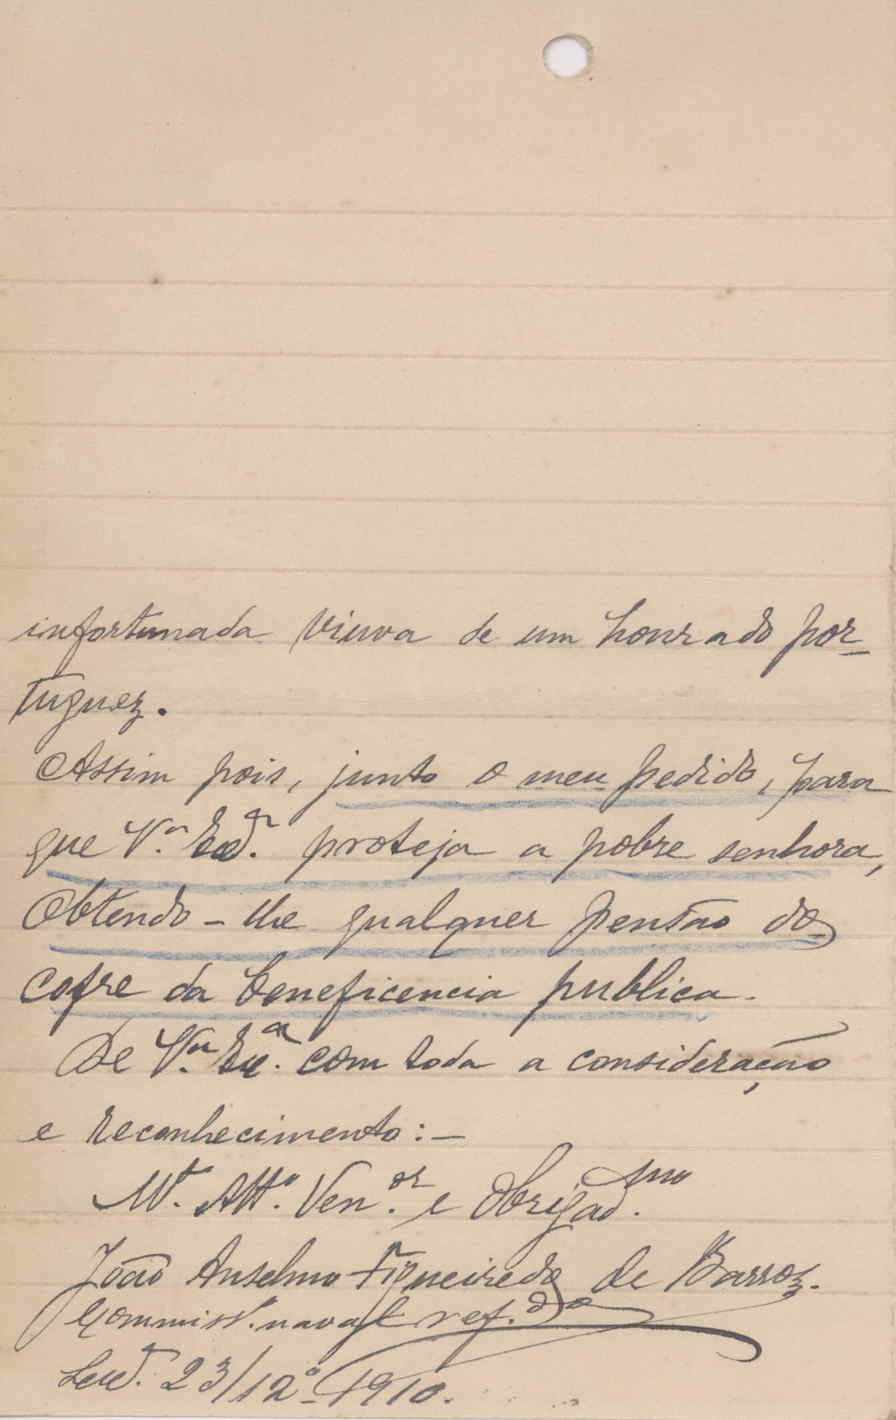 infortunada viuva de um honrado por-
tuguez.
Assim pois, junto o meu pedido, para
que V.ª Ex.ª proteja a pobre senhora,
obtendo-lhe qualquer pensão do
cofre da beneficencia publica.
De V.ª Ex.ª com toda a consideração
e reconhecimento:-
M.to Att.º Ven.or e Obrigad.mo
João Anselmo Figueiredo de Barros.
Commiss.º naval ref.do
23/12º-1910.